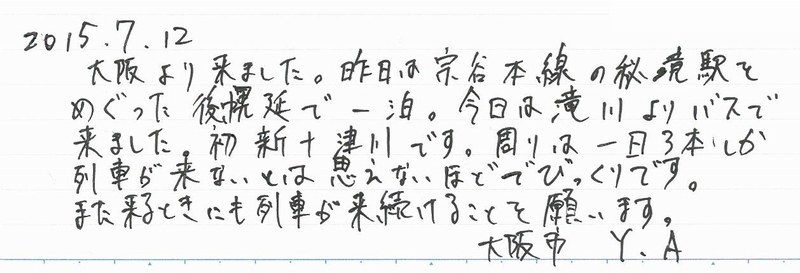 2015.7.12
大阪より来ました。昨日は宗谷本線の秘境駅を
めぐった後幌延で一泊。今日は滝川よりバスで
来ました。初新十津川です。周りは一日3本しか
列車が来ないとは思えないほどでびっくりです。
また来るときにも列車が来続けることを願います。
大阪市 Y.A